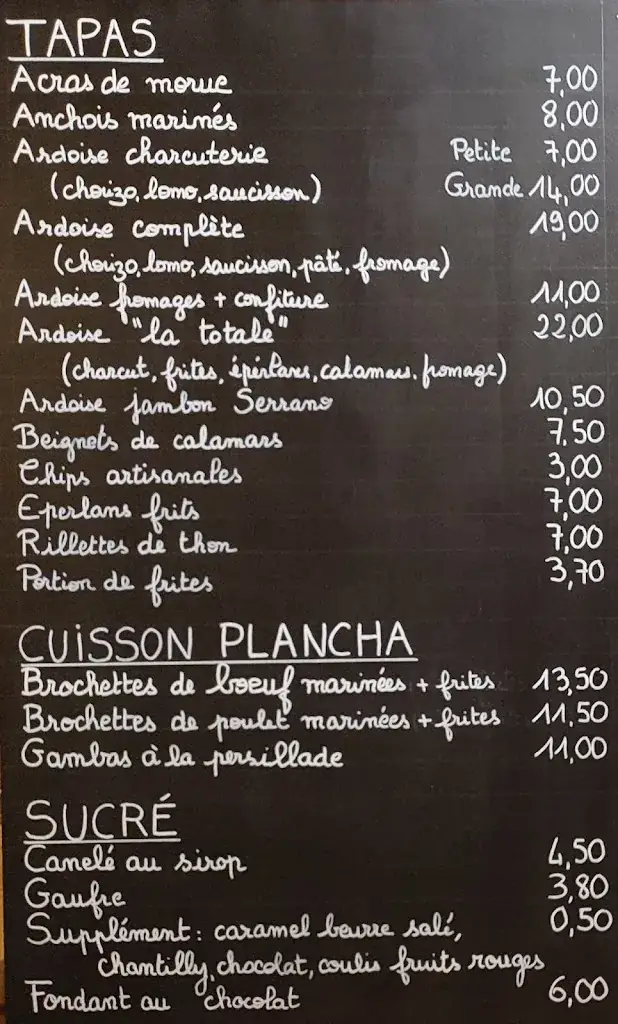 TAPAS
Acras de morue 7,00
Anchois marinés 8,00
Ardoise charcuterie Petite 7,00
(chorizo, lomo, saucisson) Grande 14,00
Ardoise complète 19,00
(chorizo, lomo, saucisson, pâté, fromage)
Ardoise fromages + confiture 11,00
Ardoise "la totale" 22,00
(charcut, frites, éperlans, calamars, fromage)
Ardoise jambon Serrano 10,50
Beignets de calamars 7,50
Chips artisanales 3,00
Eperlans frits 7,00
Rillettes de thon 7,00
Portion de frites 3,70
CUISSON PLANCHA
Brochettes de boeuf marinées + frites 13,50
Brochettes de poulet marinées + frites 11,50
Gambas à la persillade 11,00
SUCRÉ
Canelé au sirop 4,50
Gaufre 3,80
Supplément : caramel beurre salé, 0,50
chantilly, chocolat, coulis fruits rouges
Fondant au chocolat 6,00